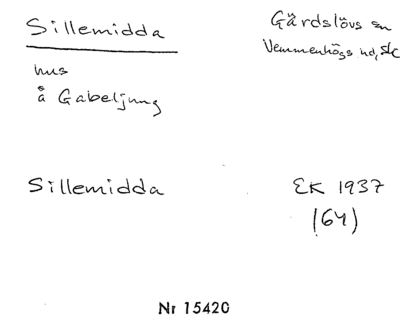 Sillemidda
Gärdslövs sn
Vemmenhögs hd, Sk
hus
å Gabeljung
Sillemidda
EK 1937
(64)
Nr 15420